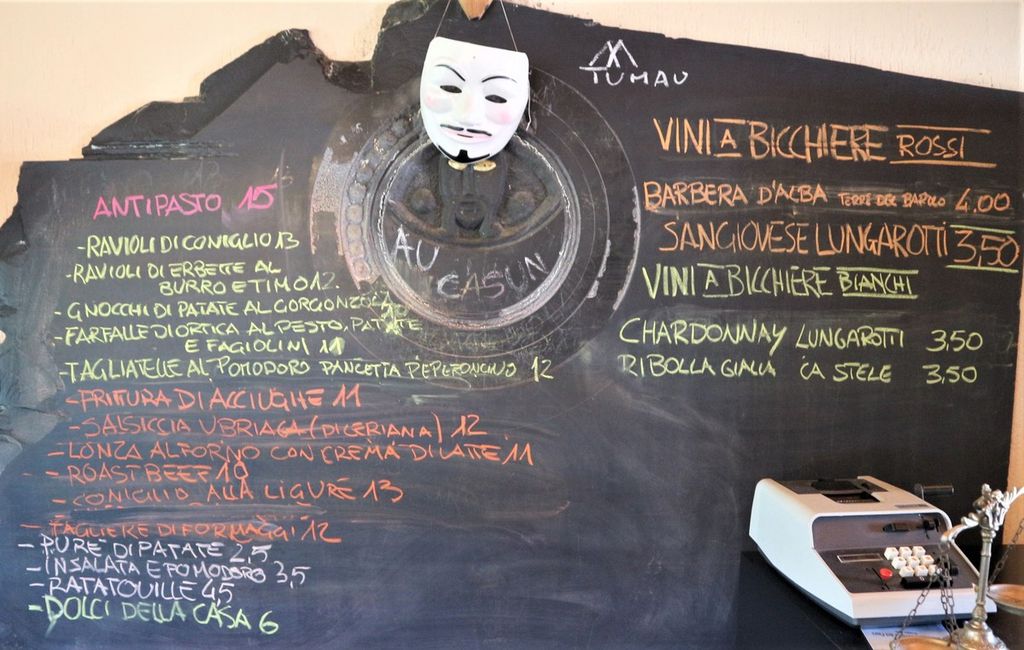 TUMAU
AU CASUN
ANTIPASTO 15
-RAVIOLI DI CONIGLIO 13
-RAVIOLI DI ERBETTE AL
BURRO E TIMO 12.
-GNOCCHI DI PATATE AL GORGONZOLA
-FARFALLE DI ORTICA AL PESTO, PATATE
E FAGIOLINI 11
-TAGLIATELLE AL POMODORO PANCETTA PEPERONCINO 12
-FRITTURA DI ACCIUGHE 11
-SALSICCIA UBRIACA (DI CERIANA) 12
-LONZA AL FORNO CON CREMA DI LATTE 11
-ROAST BEEF 10
-CONIGLIO ALLA LIGURE 13
-TAGLIERE DI FORMAGGI 12
-PURE DI PATATE 2,5
-INSALATA E POMODORO 3,5
-RATATOUILLE 4,5
-DOLCI DELLA CASA 6
VINI A BICCHIERE ROSSI
BARBERA D'ALBA TERRE DEL BAROLO 4.00
SANGIOVESE LUNGAROTTI 3,50
VINI A BICCHIERE BIANCHI
CHARDONNAY LUNGAROTTI 3,50
RIBOLLA GIALLA CA STELE 3,50